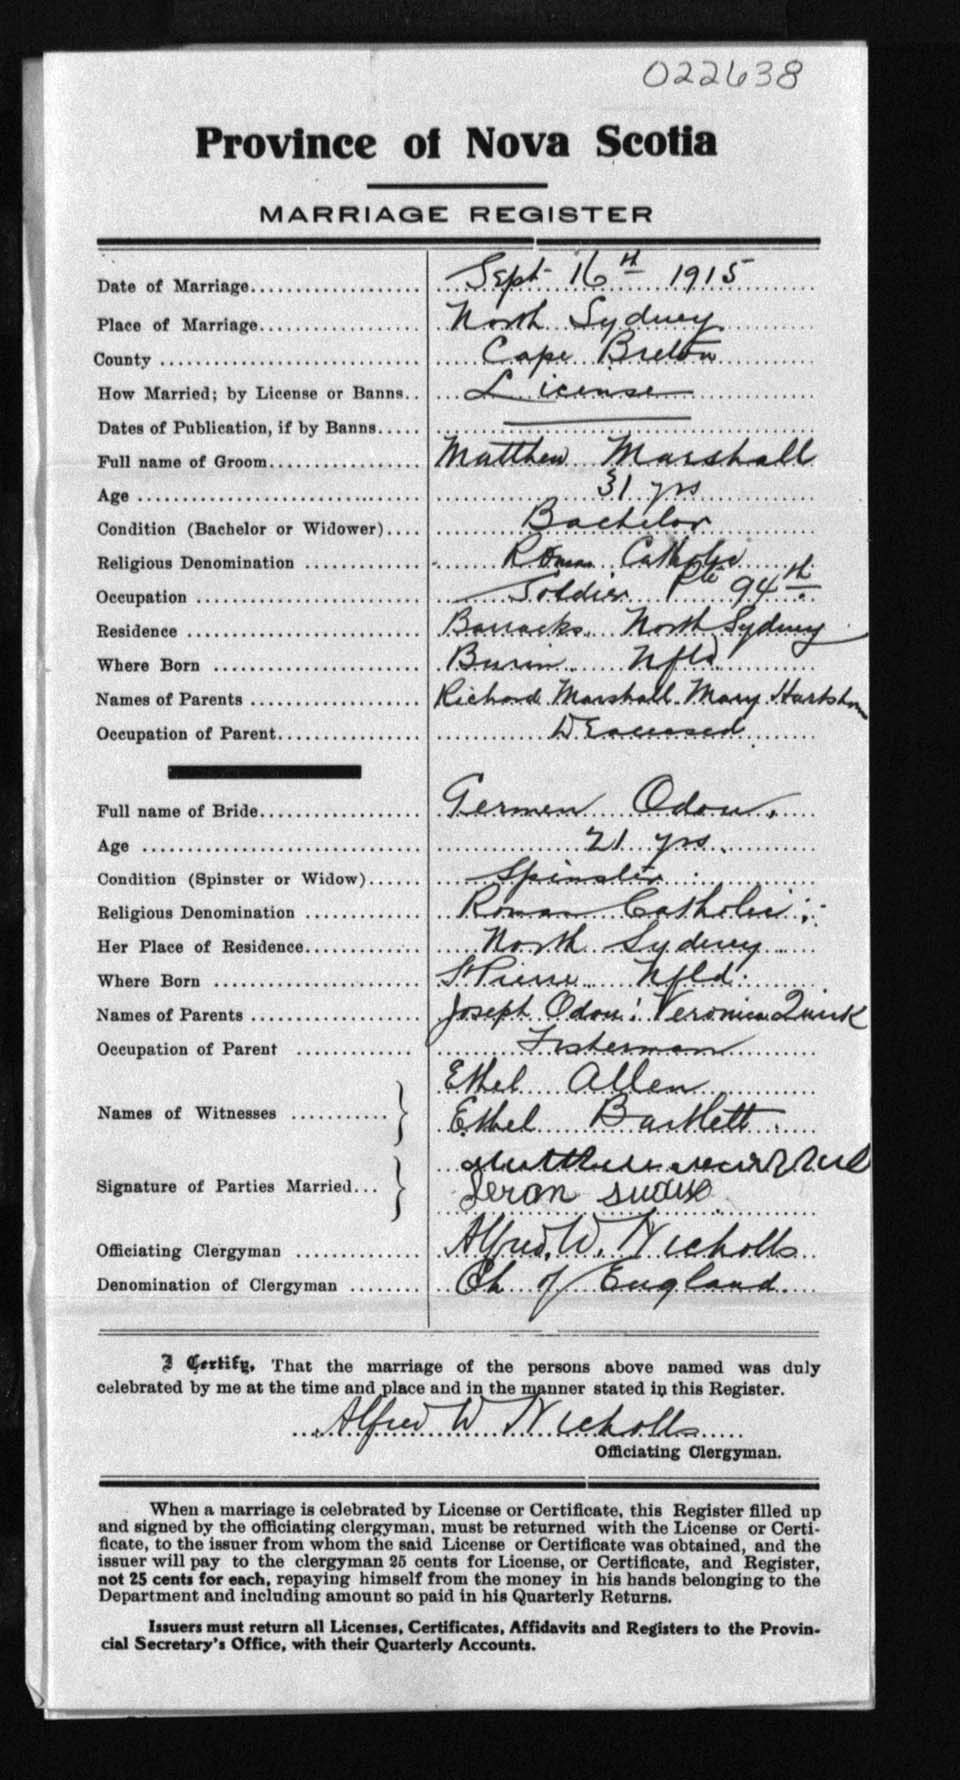 022638
Province of Nova Scotia
MARRIAGE REGISTER
Date of Marriage Sept 16th 1915
Place of Marriage North Sydney
County Cape Breton
How Married; by License or Banns License
Dates of Publication, if by Banns
Full name of Groom Matthew Marshall
Age 31 yrs
Condition (Bachelor or Widower) Bachelor
Religious Denomination Roman Catholic
Occupation Soldier Pte 94th
Residence Barracks North Sydney
Where Born Burin Nfld
Names of Parents Richard Marshall Mary
Occupation of Parent Deceased
Full name of Bride Germen Odou
Age 21 yrs.
Condition (Spinster or Widow) Spinster
Religious Denomination Roman Catholic
Her Place of Residence North Sydney
Where Born St Pierre Nfld.
Names of Parents Joseph Odou: Veronica Quirk
Occupation of Parent Fisherman
Ethel Allen
Names of Witnesses
Ethel Bartlett
Signature of Parties Married
Officiating Clergyman Alfred. W. Nicholls
Denomination of Clergyman Ch of England.
I Certify, That the marriage of the persons above named was duly
celebrated by me at the time and place and in the manner stated in this Register.
Alfred W Nicholls
Officiating Clergyman.
When a marriage is celebrated by License or Certificate, this Register filled up
and signed by the officiating clergyman, must be returned with the License or Certi-
ficate, to the issuer from whom the said License or Certificate was obtained, and the
issuer will pay to the clergyman 25 cents for License, or Certificate, and Register,
not 25 cents for each, repaying himself from the money in his hands belonging to the
Department and including amount so paid in his Quarterly Returns.
Issuers must return all Licenses, Certificates, Affidavits and Registers to the Provin-
cial Secretary's Office, with their Quarterly Accounts.